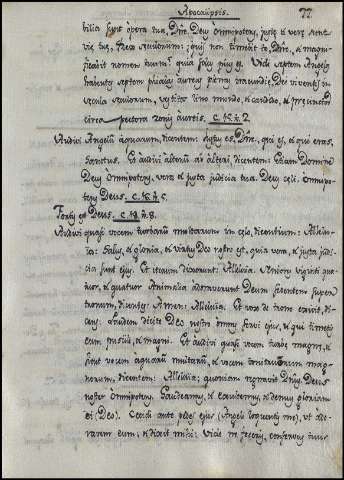 Apocalipsis. 77
bilia sunt opera tua, Dñe. Deus Omnipotens, justę et verę sunt
vię tuę, Rex seculorum; quis non timebit te, Dñe, et magni-
ficabit nomen tuum? quia solus pius es. Vidi septem Angelos
habentes septem phialas aureas plenas iracundię Dei viventis in
secula seculorum, vestitos lino mundo, et candido, et pręcinctos
circa pectora zonis aureis. C. 15.
Audivi Angelum aquarum, dicentem: Justus es, Dñe, qui es, et qui eras,
Sanctus. Et audivi alterum ab altari, dicentem: Etiam Domine
Deus Omnipotens, vera, et justa judicia tua. Deus celi. Omnipo-
tens Deus. C. 16.
Fortis est Deus. C. 18. 8.
Audivi quasi vocem turbarum multarum in cęlo, dicentium: Allelu-
ia: Salus, et gloria, et virtus Deo nostro est, quia vera, et justa judi-
cia sunt ejus. Et iterum dixerunt: Alleluia. Seniores viginti qua-
tuor, et quatuor Animalia adoraverunt Deum sedentem super
tronum, dicentes: Amen: Alleluia. Et vox de trono exivit, di-
cens: Laudem dicite Deo nostro omnes servi ejus, et qui timetis
eum pusilli, et magni. Et audivi quasi vocem turbę magnę, et
sicut vocem aquarum multarum, et vocem tonitruorum mag-
norum, dicentem: Alleluia; quoniam regnavit Dñus Deus
noster Omnipotens. Gaudeamus, et exultemus, et demus gloriam
ei (Deo). Cecidi ante pedes ejus (Angeli loquentis me), ut ado-
rarem eum; et dixit mihi: Vide ne feceris, conservus tuus